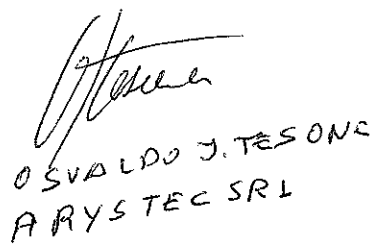 OSVALDO J. TESONE
ARYSTEC SRL